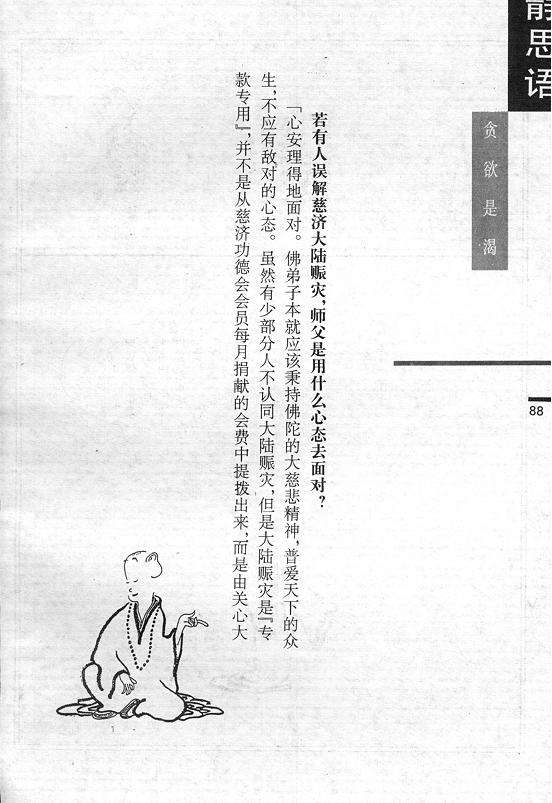 静思语
贪欲是渴
88
若有人误解慈济大陆赈灾，师父是用什么心态去面对？
「心安理得地面对。佛弟子本就应该秉持佛陀的大慈悲精神，普爱天下的众
生，不应有敌对的心态。虽然有少部分人不认同大陆赈灾，但是大陆赈灾是『专
款专用』，并不是从慈济功德会会员每月捐献的会费中提拨出来，而是由关心大